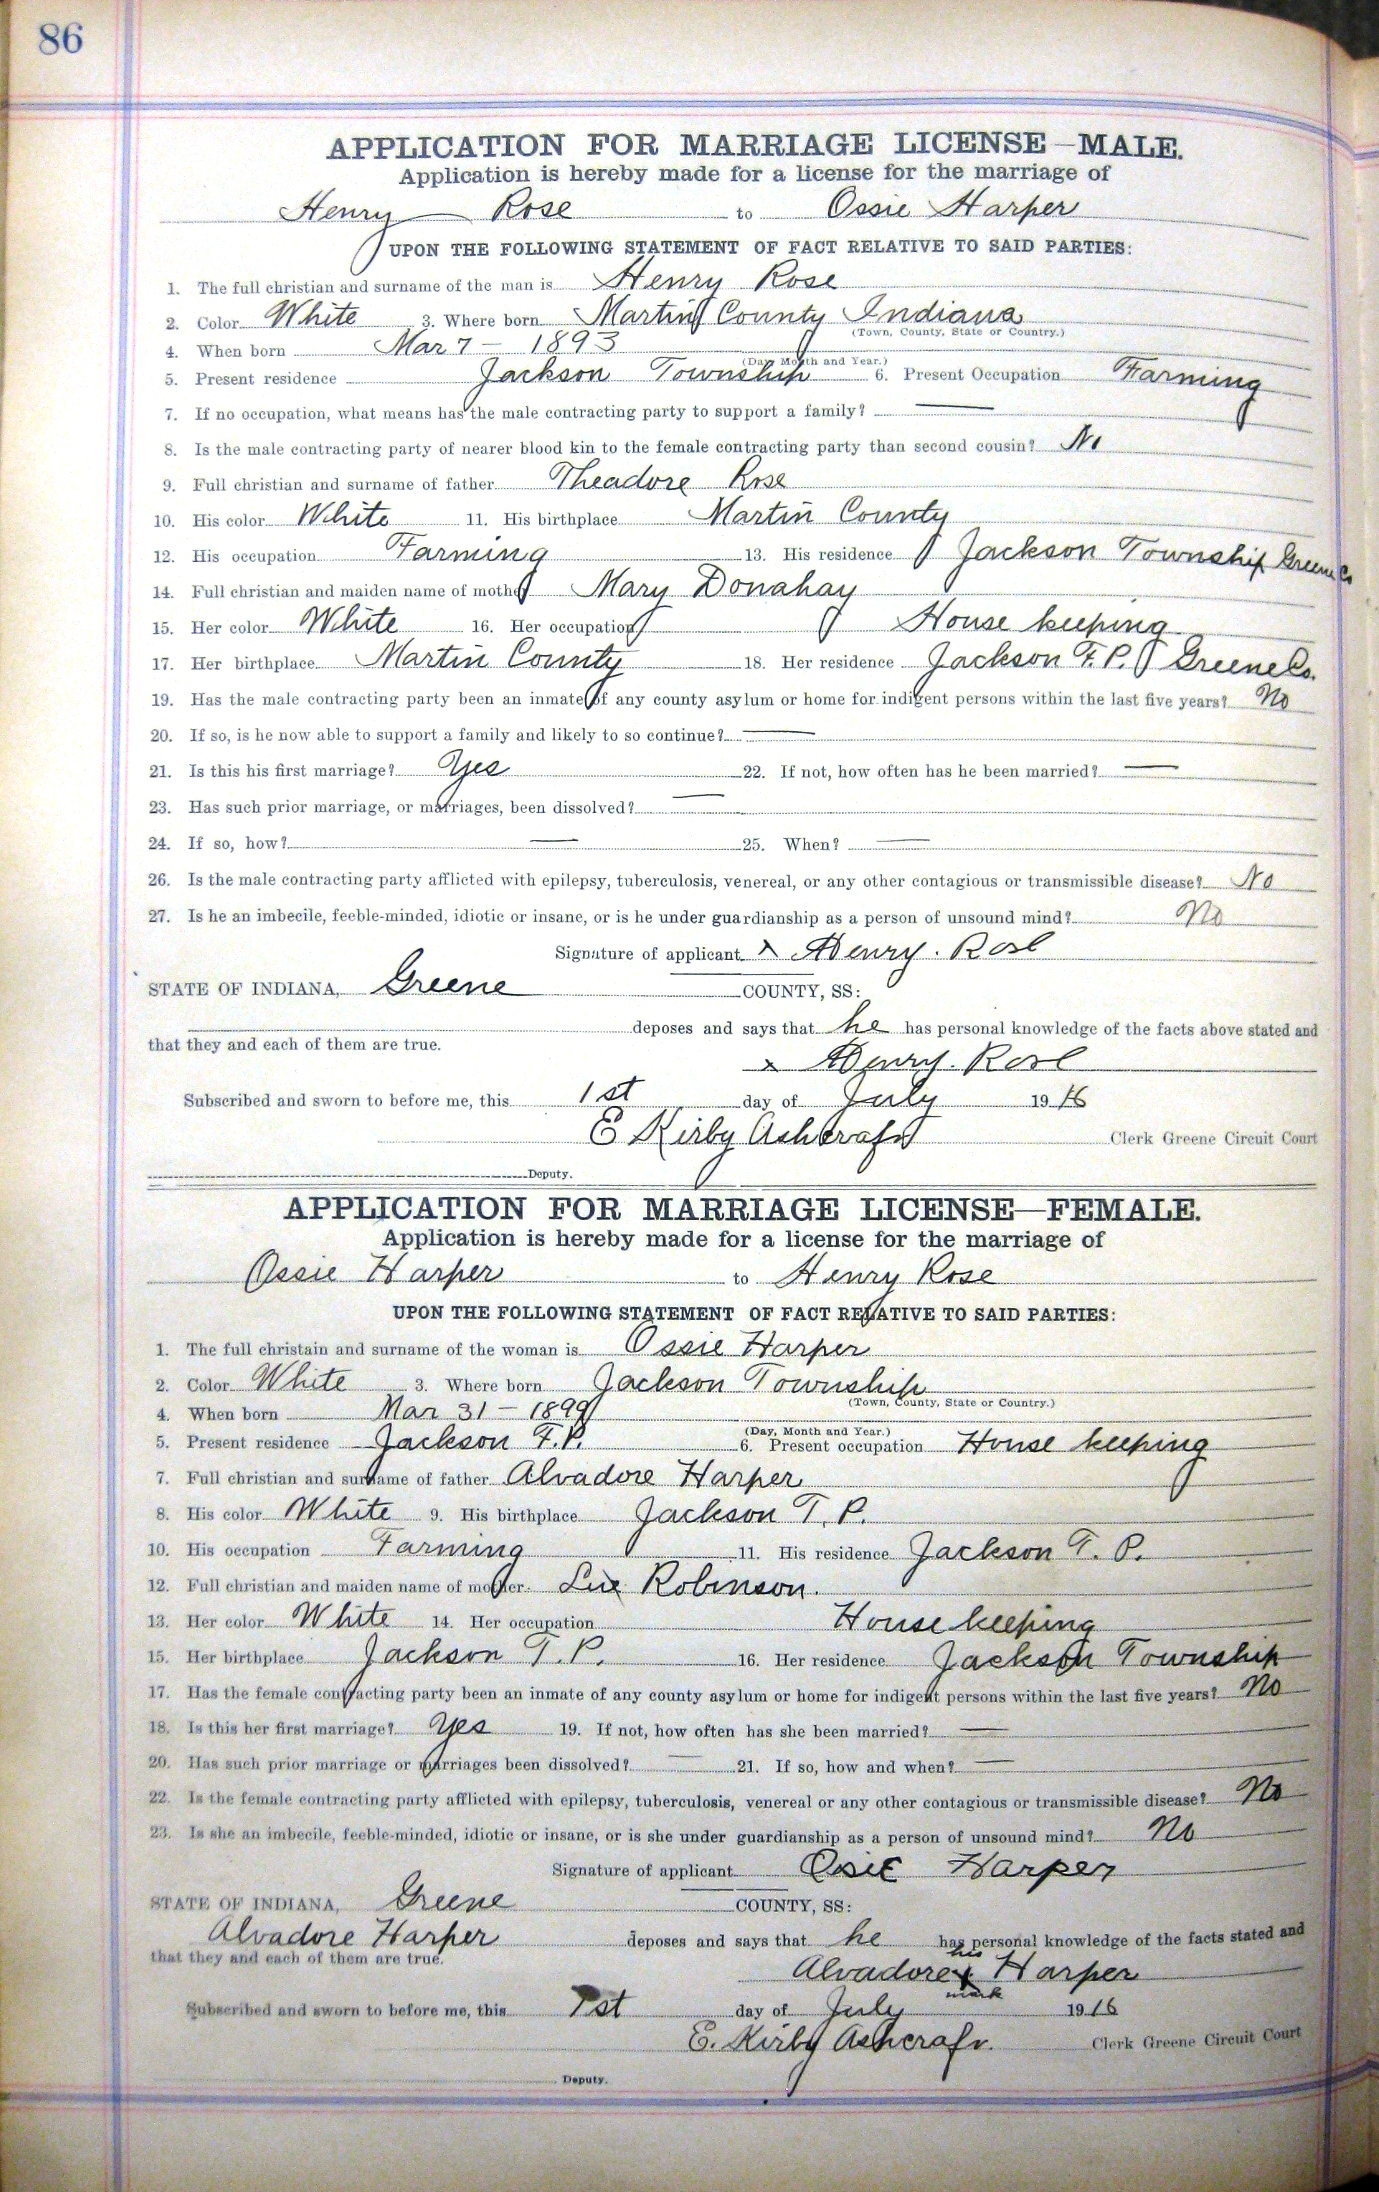 86
APPLICATION FOR MARRIAGE LICENSE—MALE.
Application is hereby made for a license for the marriage of
Henry Rose to Ossie Harper
UPON THE FOLLOWING STATEMENT OF FACT RELATIVE TO SAID PARTIES:
1. The full christian and surname of the man is Henry Rose
2. Color White 3. Where born Martin County Indiana
(Town, County, State or Country.)
4. When born Mar 7 — 1893
(Day, Month and Year.)
5. Present residence Jackson Township 6. Present Occupation Farming
7. If no occupation, what means has the male contracting party to support a family? —
8. Is the male contracting party of nearer blood kin to the female contracting party than second cousin? No
9. Full christian and surname of father Theadore Rose
10. His color White 11. His birthplace Martin County
12. His occupation Farming 13. His residence Jackson Township Greene Co
14. Full christian and maiden name of mother Mary Donahay
15. Her color White 16. Her occupation House keeping
17. Her birthplace Martin County 18. Her residence Jackson T.P. Greene Co.
19. Has the male contracting party been an inmate of any county asylum or home for indigent persons within the last five years? No
20. If so, is he now able to support a family and likely to so continue? —
21. Is this his first marriage? Yes 22. If not, how often has he been married? —
23. Has such prior marriage, or marriages, been dissolved? —
24. If so, how? — 25. When? —
26. Is the male contracting party afflicted with epilepsy, tuberculosis, venereal, or any other contagious or transmissible disease? No
27. Is he an imbecile, feeble-minded, idiotic or insane, or is he under guardianship as a person of unsound mind? No
Signature of applicant x Henry. Rose
STATE OF INDIANA, Greene COUNTY, SS:
deposes and says that he has personal knowledge of the facts above stated and
that they and each of them are true.
x Henry. Rose
Subscribed and sworn to before me, this 1st day of July 1916
E Kirby Ashcraft Clerk Greene Circuit Court
Deputy.
APPLICATION FOR MARRIAGE LICENSE—FEMALE.
Application is hereby made for a license for the marriage of
Ossie Harper to Henry Rose
UPON THE FOLLOWING STATEMENT OF FACT RELATIVE TO SAID PARTIES:
1. The full christain and surname of the woman is Ossie Harper
2. Color White 3. Where born Jackson Township
(Town, County, State or Country.)
4. When born Mar 31 — 1899
(Day, Month and Year.)
5. Present residence Jackson T.P. 6. Present occupation House keeping
7. Full christian and surname of father Alvadore Harper
8. His color White 9. His birthplace Jackson T. P.
10. His occupation Farming 11. His residence Jackson T. P.
12. Full christian and maiden name of mother Robinson.
13. Her color White 14. Her occupation House keeping
15. Her birthplace Jackson T.P. 16. Her residence Jackson Township
17. Has the female contracting party been an inmate of any county asylum or home for indigent persons within the last five years? No
18. Is this her first marriage? Yes 19. If not, how often has she been married? —
20. Has such prior marriage or marriages been dissolved? — 21. If so, how and when? —
22. Is the female contracting party afflicted with epilepsy, tuberculosis, venereal or any other contagious or transmissible disease? No
23. Is she an imbecile, feeble-minded, idiotic or insane, or is she under guardianship as a person of unsound mind? No
Signature of applicant Osie Harper
STATE OF INDIANA, Greene COUNTY, SS:
Alvadore Harper deposes and says that he has personal knowledge of the facts stated and
that they and each of them are true.
his
Alvadore x Harper
mark
Subscribed and sworn to before me, this 1st day of July 1916
E. Kirby Ashcraft. Clerk Greene Circuit Court
Deputy.